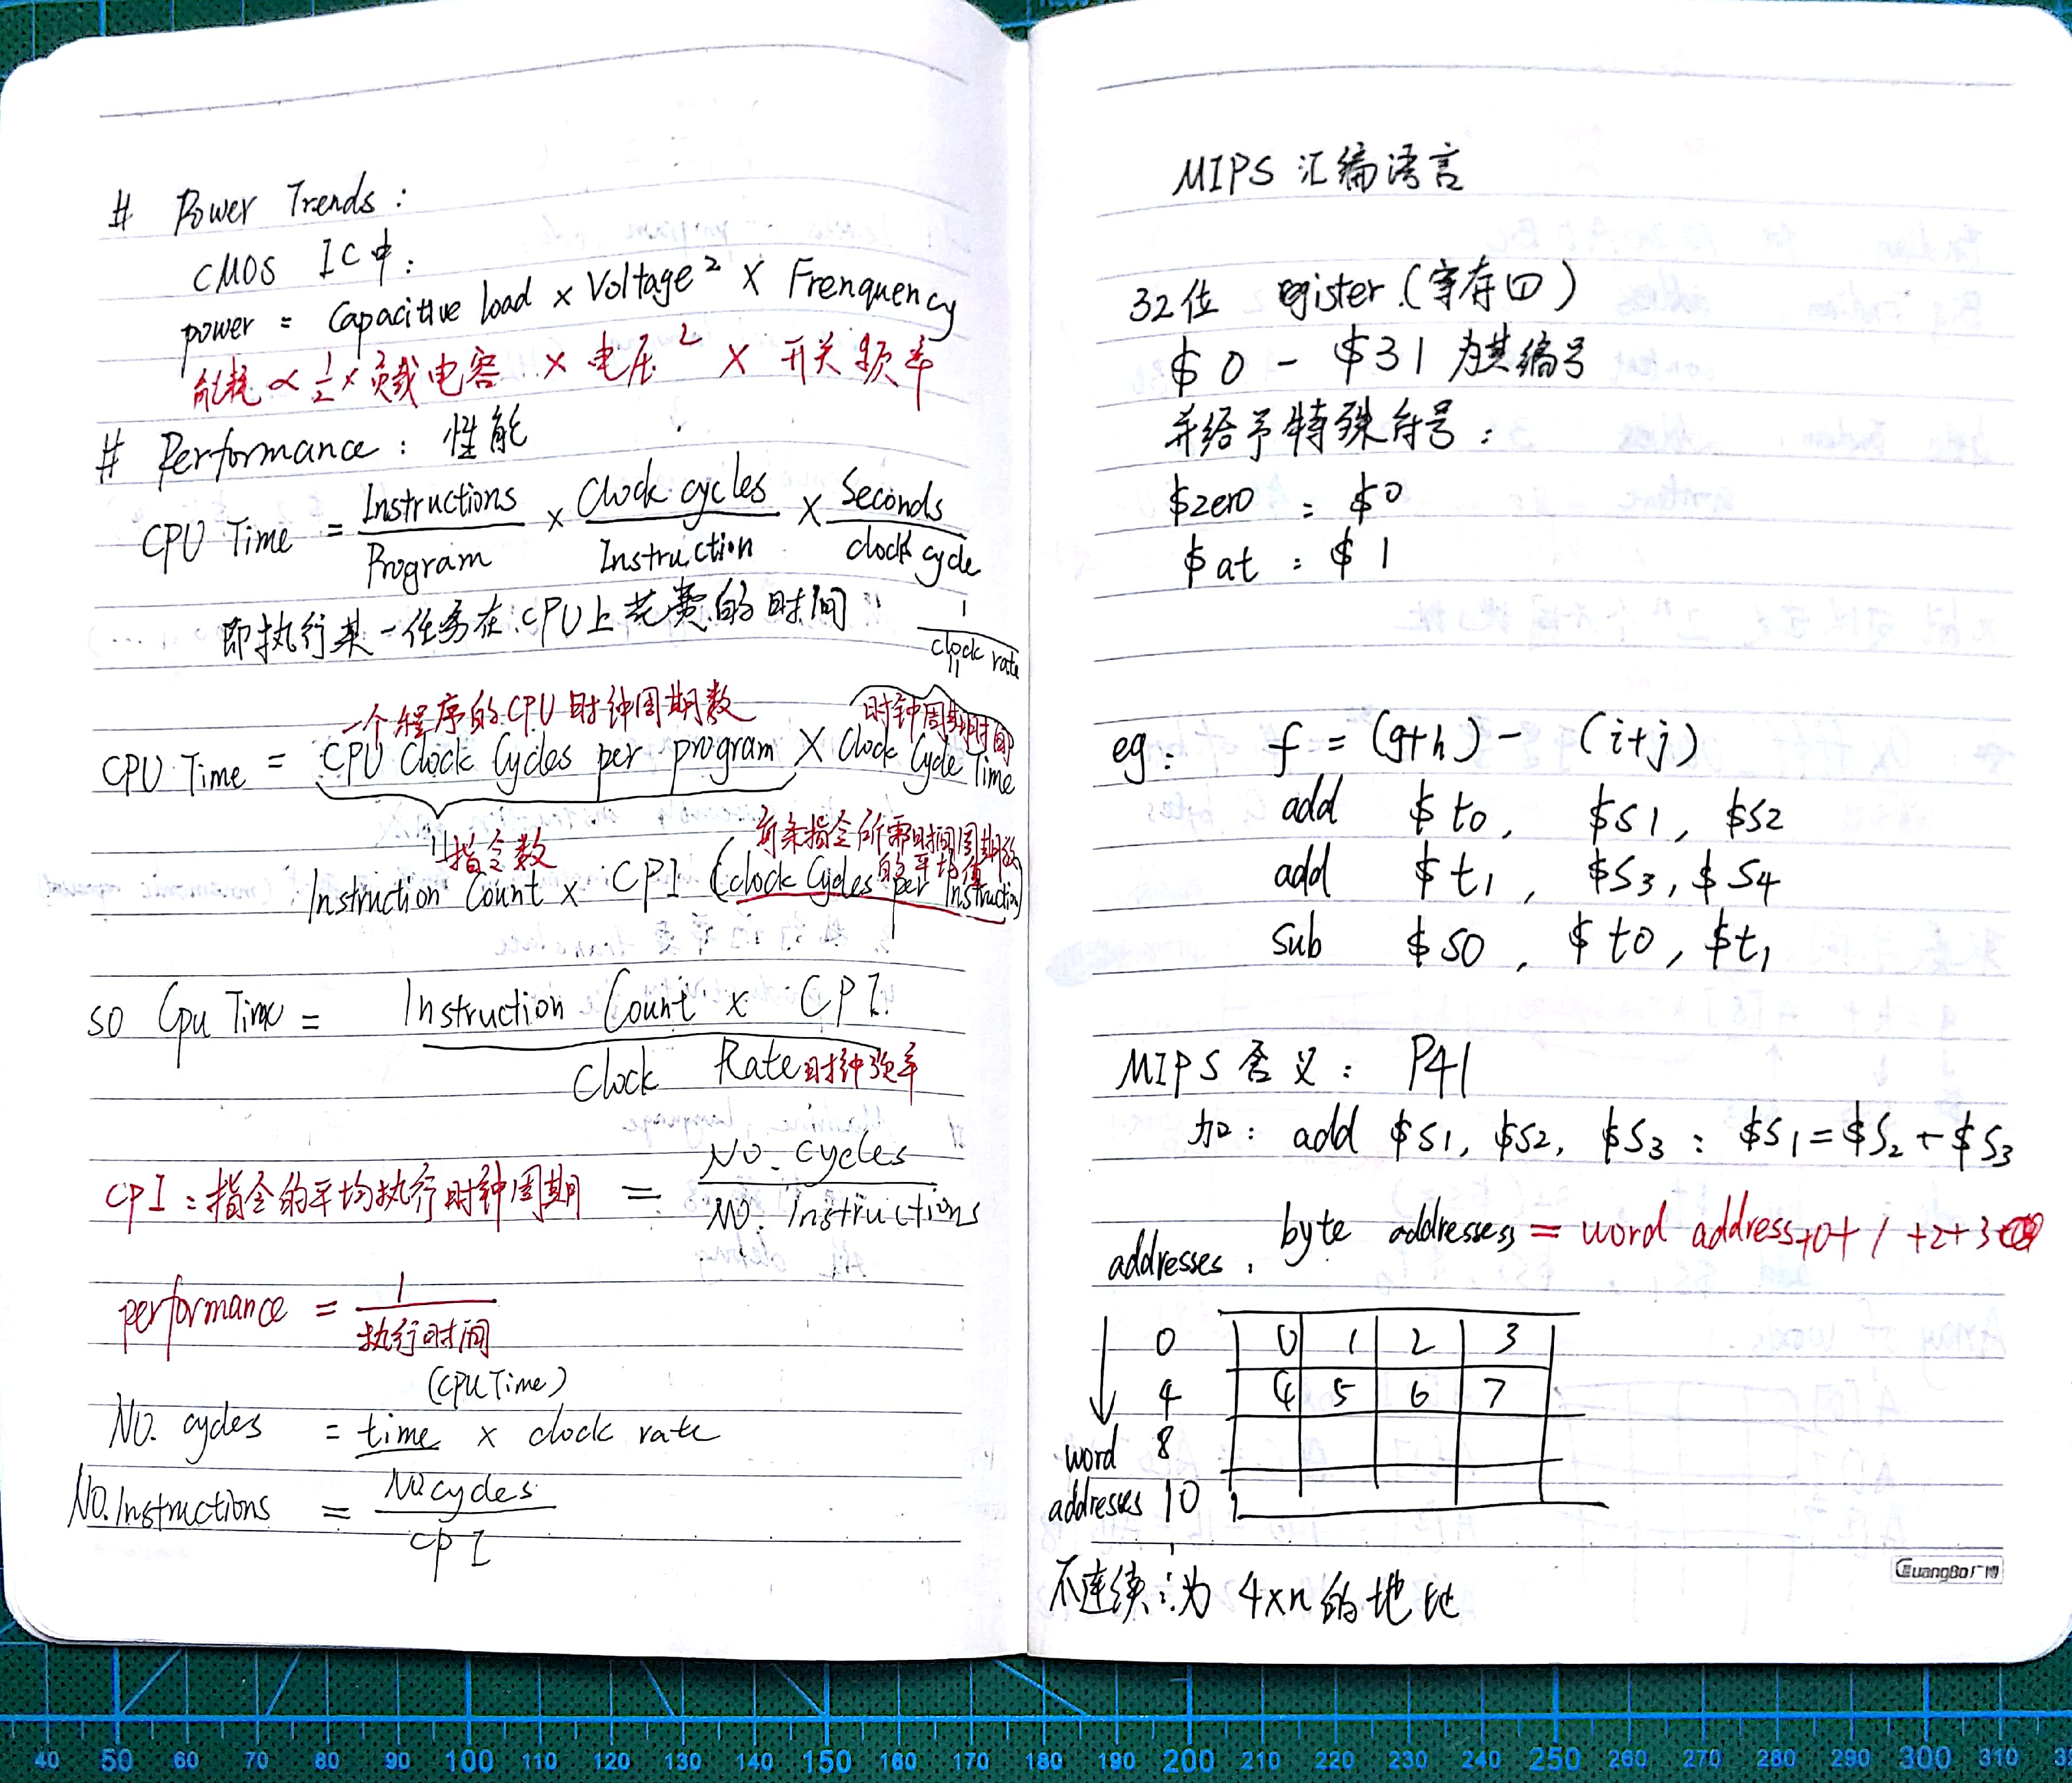 # Power Trends :
CMOS IC中:
power = Capacitive load × Voltage² × Frenquency
能耗 ∝ 1/2 × 负载电容 × 电压² × 开关频率
# Performance : 性能
CPU Time = Instructions/Program × Clock cycles/Instruction × Seconds/clock cycle
即执行某一任务在CPU上花费的时间
1/clock rate
一个程序的CPU时钟周期数 时钟周期时间
CPU Time = CPU Clock Cycles per program × Clock Cycle Time
指令数
的平均值
Instruction Count × CPI (clock Cycles per Instruction)
so Cpu Time = Instruction Count × CPI / Clock Rate 时钟频率
CPI : 指令的平均执行时钟周期 = NO. cycles / NO. Instructions
performance = 1/执行时间
(CPU Time)
NO. cycles = time × clock rate
NO. Instructions = NO. cycles / CPI
MIPS 汇编语言
32位 register (寄存口)
$0 - $31 为其编号
并给予特殊符号:
$zero : $0
$at : $1
eg: f = (g+h) - (i+j)
add $t0, $s1, $s2
add $t1, $s3, $s4
sub $s0, $t0, $t1
MIPS 含义: P41
加: add $s1, $s2, $s3 : $s1 = $s2 + $s3
byte addresses = word address +0 +1 +2 +3
addresses.
0 0 1 2 3
4 4 5 6 7
word 8
addresses 10
不连续 ∵为 4×n 的地址
GuangBo广博
40 50 60 70 80 90 100 110 120 130 140 150 160 170 180 190 200 210 220 230 240 250 260 270 280 290 300 310